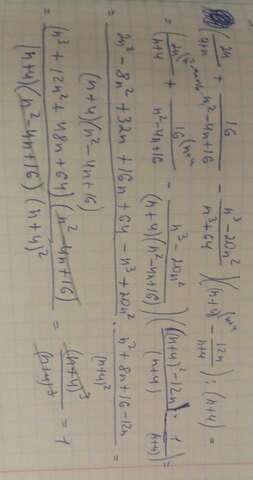 (2n/(n+4) + 16/(n²-4n+16) - (n³-20n²)/(n³+64)) ((n+4) - 12n/(n+4)) : (n+4) =
= (2n/(n+4) + 16/(n²-4n+16) - (n³-20n²)/((n+4)(n²-4n+16))) (((n+4)²-12n)/(n+4)) · 1/(n+4) =
= (2n³-8n²+32n+16n+64-n³+20n²)/((n+4)(n²-4n+16)) · (n²+8n+16-12n)/(n+4)² =
= (n³+12n²+48n+64)(n²-4n+16)/((n+4)(n²-4n+16)(n+4)²) = (n+4)³/(n+4)³ = 1